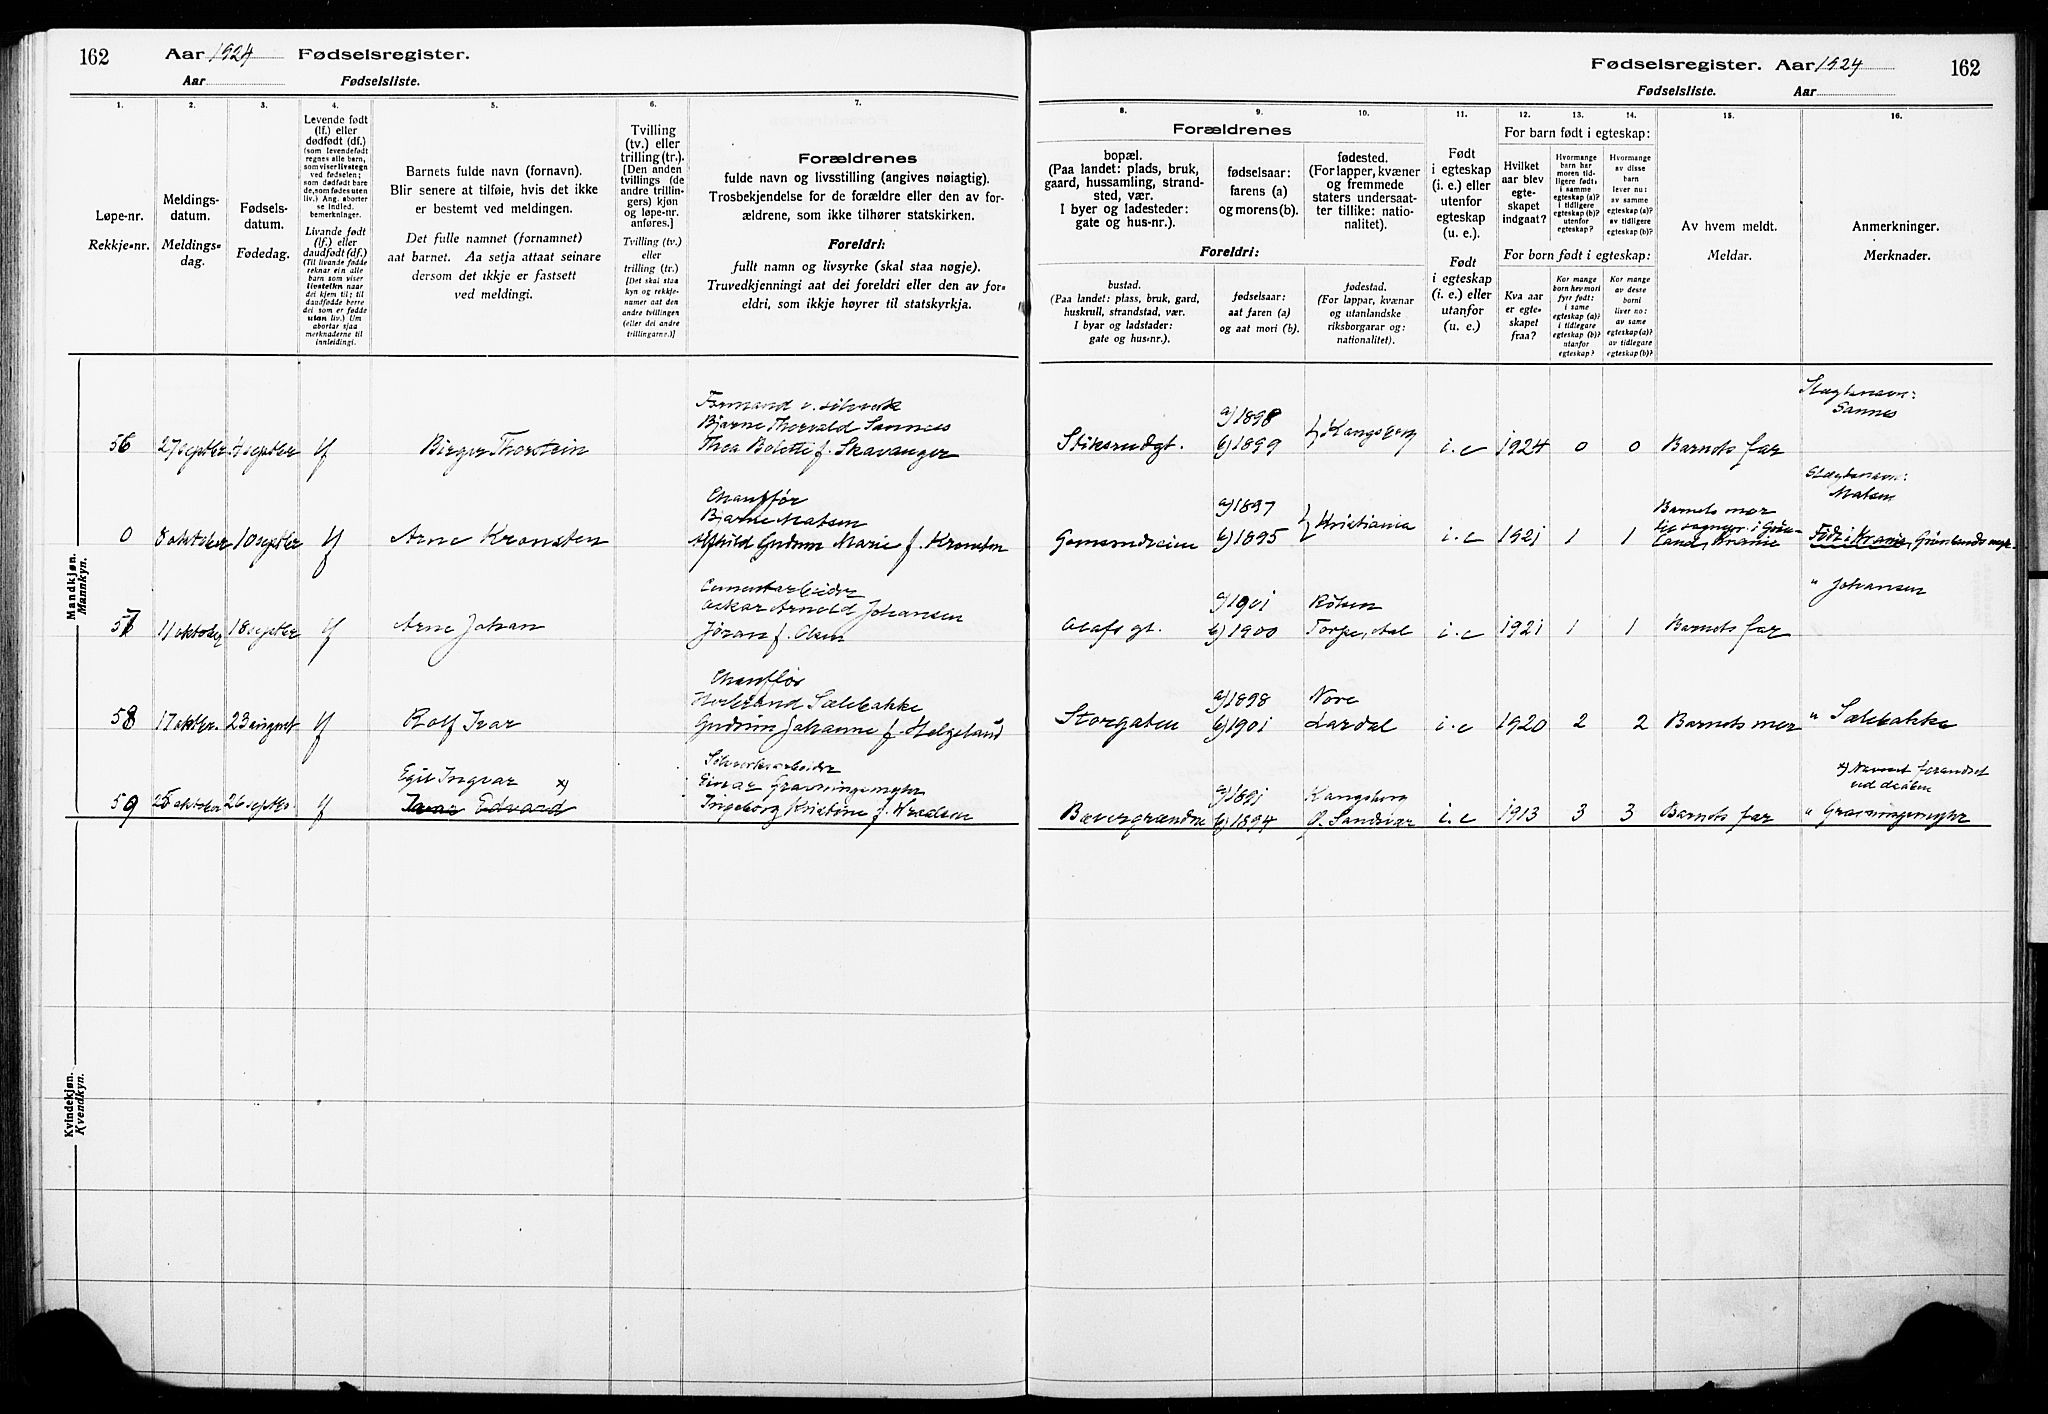 162 Aar 1924 Fødselsregister.
Aar Fødselsliste.
Fødselsregister. Aar 1924 162
Fødselsliste. Aar
1. 2. 3. 4. 5. 6. 7.
8. 9. 10. 11. 12. 13. 14. 15. 16.
Løpe-nr.
Rekkje-nr.
Meldings-
datum.
Meldings-
dag.
Fødsels-
datum.
Fødedag.
Levende født
(lf.) eller
dødfødt (df.)
(som levendefødt
regnes alle barn,
som viser livstegn
ved fødselen;
som dødfødt bare
de, som fødes uten
liv.) Ang. aborter
se indled.
bemerkninger.
Livande født
(lf.) eller
daudfødt (df.)
(Til livande fødde
reknar ein alle
barn som viser
livsteikn naar
dei kjem til; til
daudfødde berre
dei som er fødde
utan liv.) Um
abortar sjaa
merknaderne til
innleidingi.
Barnets fulde navn (fornavn).
Blir senere at tilføie, hvis det ikke
er bestemt ved meldingen.
Det fulle namnet (fornamnet)
aat barnet. Aa setja attaat seinare
dersom det ikkje er fastsett
ved meldingi.
Tvilling
(tv.) eller
trilling (tr.).
[Den anden
tvillings (de
andre trillin-
gers) kjøn
og løpe-nr.
anføres.]
Tvilling (tv.)
eller
trilling (tr.)
[Det skal staa
kyn og rekkje-
numer aat den
andre tvillingen
(eller dei andre
trillingarne.)]
Forældrenes
fulde navn og livsstilling (angives nøiagtig).
Trosbekjendelse for de forældre eller den av for-
ældrene, som ikke tilhører statskirken.
Foreldri:
fullt namn og livsyrke (skal staa nøgje).
Truvedkjenningi aat dei foreldri eller den av for-
eldri, som ikkje høyrer til statskyrkja.
Forældrenes
bopæl.
(Paa landet: plads, bruk,
gaard, hussamling, strand-
sted, vær.
I byer og ladesteder:
gate og hus-nr.).
fødselsaar:
farens (a)
og morens (b).
fødested.
(For lapper, kvæner
og fremmede
staters undersaat-
ter tillike: natio-
nalitet).
Foreldri:
bustad.
(Paa landet: plass, bruk, gard,
huskrull, strandstad, vær.
I byar og ladstader:
gate og hus-nr.).
fødselsaar:
aat faren (a)
og aat mori (b).
fødestad.
(For lappar, kvænar
og utanlandske
riksborgarar og:
nationalitet).
Født
i egteskap
(i. e.) eller
utenfor
egteskap
(u. e.).
Født
i egteskap
(i. e.) eller
utanfor
egteskap
(u. e.).
For barn født i egteskap:
Hvilket
aar blev
egte-
skapet
indgaat?
Hvormange
barn har
moren tid-
ligere født:
i samme
egteskap (a)?
i tidligere
egteskap (b)?
utenfor
egteskap?
Hvormange
av disse
barn
lever nu:
av samme
egteskap (a)?
av tidligere
egteskap (b)?
For born født i egteskap:
Kva aar
er egte-
skapet
fraa?
Kor mange
born hev mori
fyrr født:
i same
egteskap (a)?
i tidlegare
egteskap (b)?
utanfor
egteskap?
Kor mange
av desse
borni
liver no:
av same
egteskap (a)?
av tidlegare
egteskap (b)?
Av hvem meldt.
Meldar.
Anmerkninger.
Merknader.
Mandkjøn.
Mannkyn.
Formand v. sølvverk
Bjarne Thorvald Sannes
56 27 septbr. 4 septbr lf Birger Thorstein Thea Bolette f. Skavanger
Slægtsnavn:
Sannes
a) 1898
Stiksrudgt. b) 1899 } Kongsberg i. e 1924 0 0 Barnets far
Chauffør
Bjarne Matsen
0 8 oktober 10 septbr lf Arne Kronsten Alfhild Gudrun Marie f. Kronsten
Slægtsnavn:
Matsen
a) 1897 Barnets mor
b) 1895 } Kristiania i. e 1921 1 1 Født i Krania, Grønlands
Cementarbeider
Oskar Arnold Johansen
57 11 oktober 18 septbr lf Arne Johan Jøran f. Olsen
" Johansen
a) 1901
Olafs gt. b) 1900 Torpe, Aal i. e 1921 1 1 Barnets far
Chauffør
Herbrand Sælebakke
58 17 oktbr. 23 august lf Rolf Ivar Gudrun Johanne f. Helgeland
a) 1898 Nore
Storgaten b) 1901 Lardal i. e 1920 2 2 Barnets mor " Sælebakke
Egil Ingvar x)
Einar Gravningsmyhr
59 25 oktober 26 septbr. lf Ivar Edvard Ingeborg Kristine f.
x) Navnet forandret
ved daaben
a) 1891 Kongsberg
Bævergrænden b) 1894 Ø. Sandsvær i. e 1913 3 3 Barnets far " Gravningsmyhr
Kvindekjøn.
Kvendkyn.